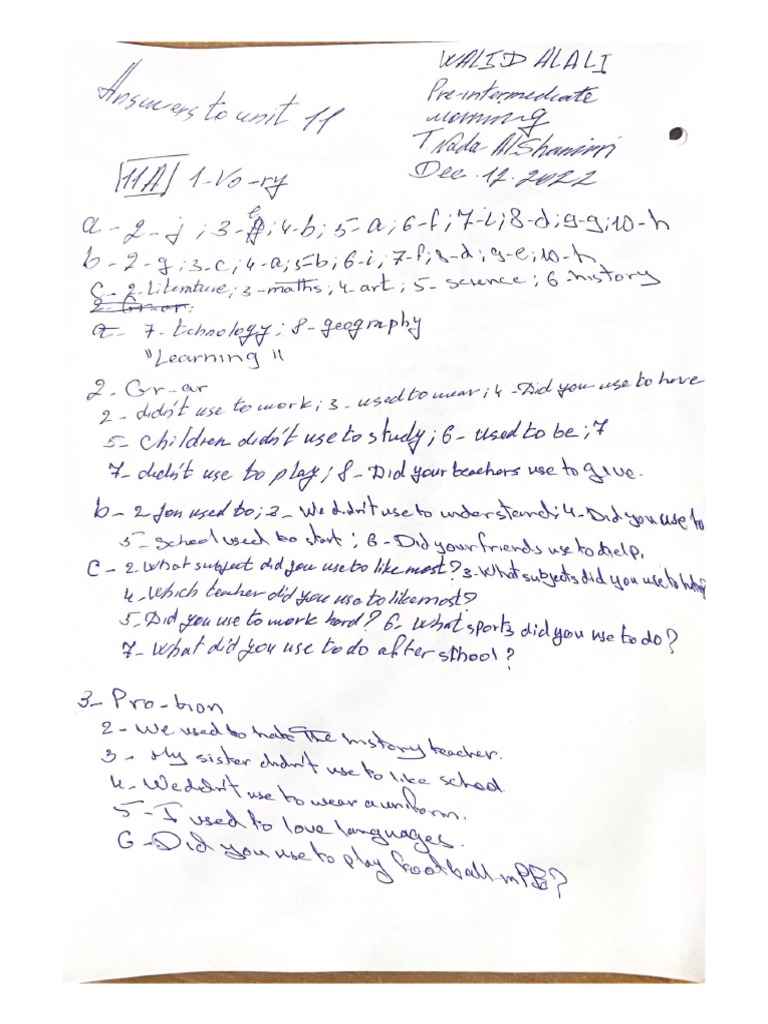 WALID ALALI
Answers to unit 11
Pre-intermediate
morning
T Nada AlShammri
Dec. 12. 2022
11A 1-Vo-ry
a - 2 - j ; 3 - e ; 4-b ; 5-a ; 6-f ; 7-i ; 8-d ; 9-g ; 10-h
b - 2-g ; 3-c ; 4-a ; 5-b ; 6-i ; 7-f ; 8-d ; 9-e ; 10-h
C - 2-literature ; 3-maths ; 4-art ; 5- science ; 6-history
2-Gr-ar:
a- 7-tchnology ; 8-geography
"Learning"
2. Gr-ar
2 - didn't use to work ; 3 - used to wear ; 4-Did you use to have
5- Children didn't use to study ; 6- used to be ; 7
7- didn't use to play ; 8-Did your teachers use to give.
b - 2 Jon used to ; 3 - We didn't use to understand ; 4-Did you use to
5- school used to start ; 6-Did your friends use to help.
C - 2. What subject did you use to like most? 3-What subjects did you use to
4-Which teacher did you use to like most?
5-Did you use to work hard? 6- What sports did you use to do?
7- What did you use to do after school?
3- Pro-tion
2-We used to hate The history teacher.
3- My sister didn't use to like school.
4-We didn't use to wear a uniform.
5-I used to love languages.
6-Did you use to play football in PE?